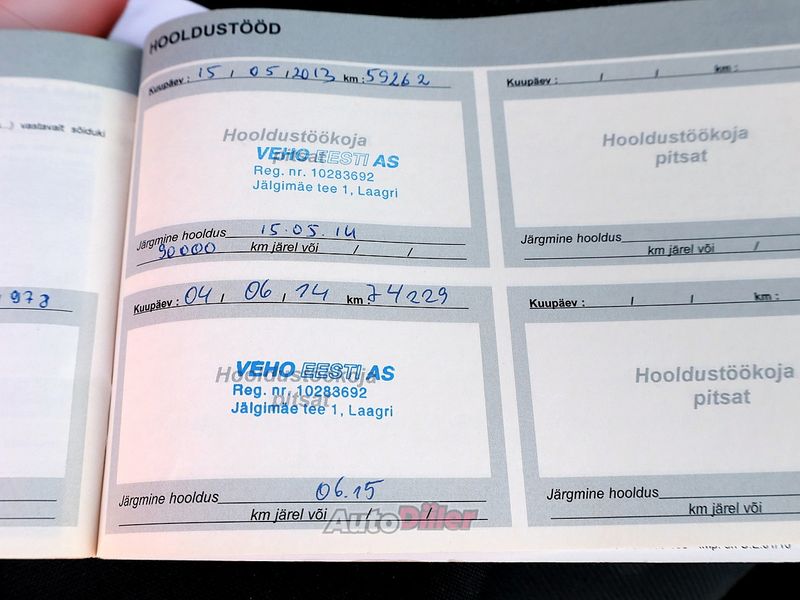 ...) vastavait sõiduki
978
HOOLDUSTÖÖD
Kuupäev : 15 / 05 / 2013 km : 59262
Hooldustöökoja
pitsat
VEHO EESTI AS
Reg. nr. 10283692
Jälgimäe tee 1, Laagri
Järgmine hooldus 15.05.14
90000 km järel või / /
Kuupäev : 04 / 06 / 14 km : 74229
Hooldustöökoja
pitsat
VEHO EESTI AS
Reg. nr. 10283692
Jälgimäe tee 1, Laagri
Järgmine hooldus 06.15
km järel või / /
Kuupäev : / / km :
Hooldustöökoja
pitsat
Järgmine hooldus
km järel või /
Kuupäev : / / km :
Hooldustöökoja
pitsat
Järgmine hooldus
km järel või
AutoDiiler